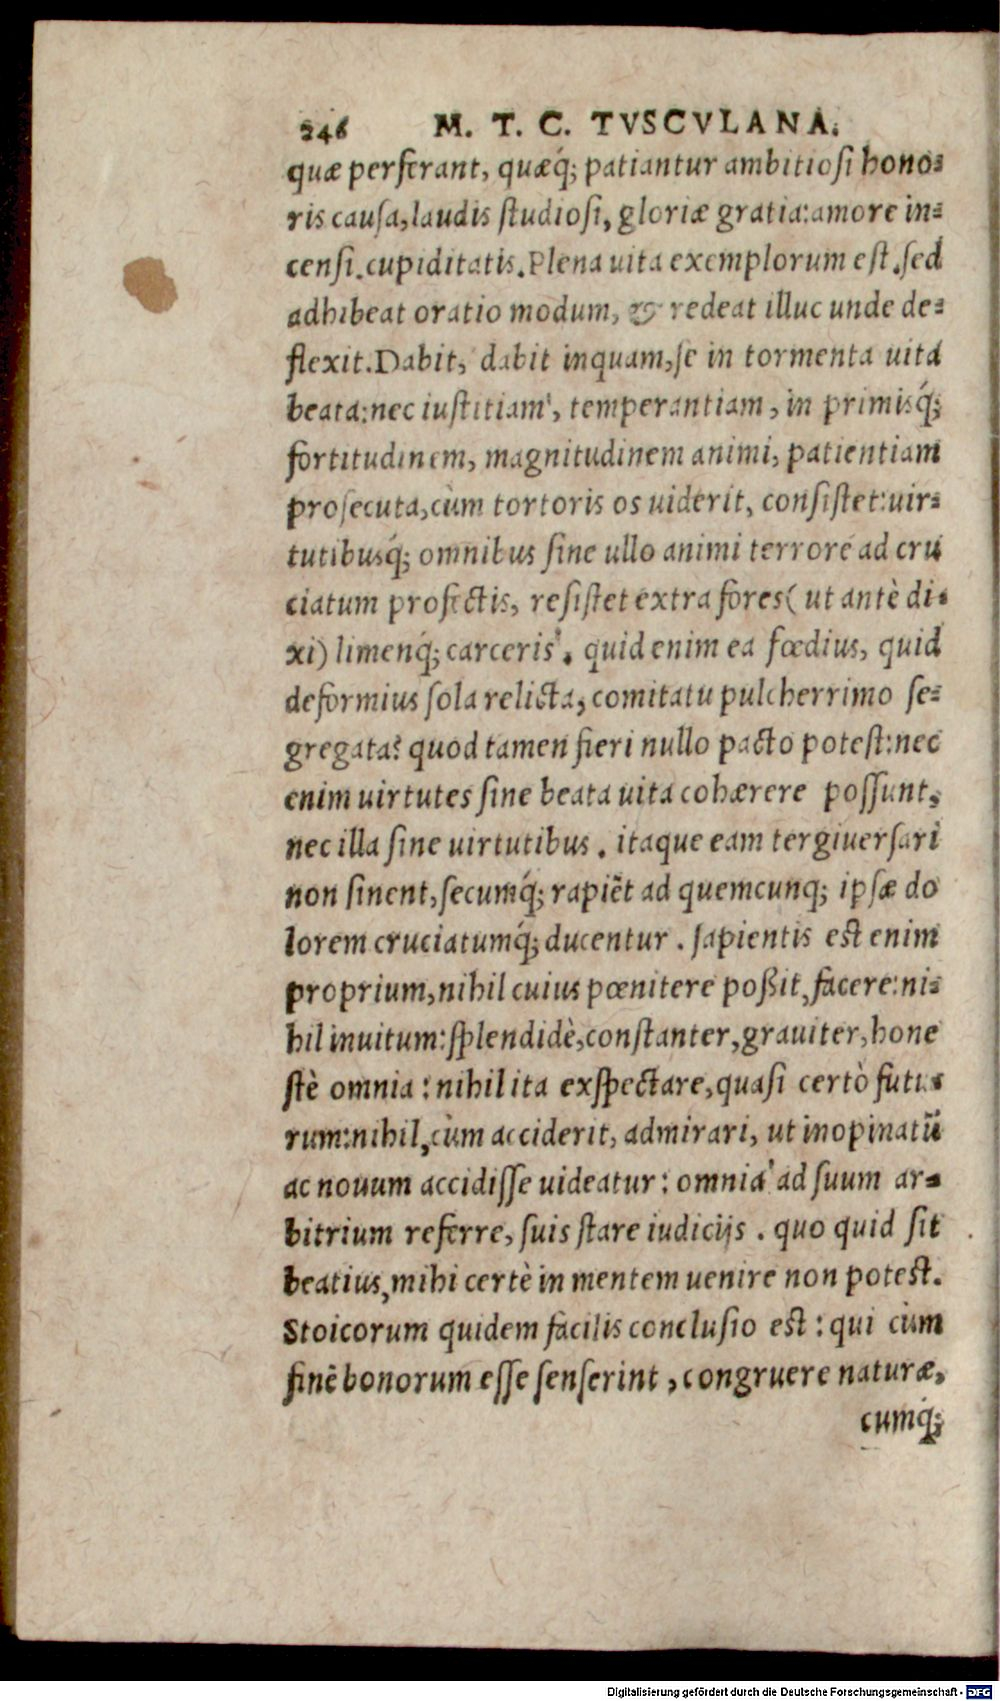 246 M. T. C. TVSCVLANA.
quæ perferant, quæq́; patiantur ambitiosi hono-
ris causa, laudis studiosi, gloriæ gratia: amore in-
censi. cupiditatis. Plena uita exemplorum est. sed
adhibeat oratio modum, & redeat illuc unde de-
flexit. Dabit, dabit inquam, se in tormenta uita
beata: nec iustitiam, temperantiam, in primisq́;
fortitudinem, magnitudinem animi, patientiam
prosecuta, cùm tortoris os uiderit, consistet: uir-
tutibusq́; omnibus sine ullo animi terrore ad cru
ciatum profectis, resistet extra fores ( ut antè di-
xi) limenq́; carceris. quid enim ea fœdius, quid
deformius sola relicta, comitatu pulcherrimo se-
gregata? quod tamen fieri nullo pacto potest: nec
enim uirtutes sine beata uita cohærere possunt,
nec illa sine uirtutibus. itaque eam tergiuersari
non sinent, secumq́; rapiẽt ad quemcunq; ipsæ do
lorem cruciatumq́; ducentur. sapientis est enim
proprium, nihil cuius pœnitere poßit, facere: ni-
hil inuitum: splendidè, constanter, grauiter, hone
stè omnia: nihil ita exspectare, quasi certò futu-
rum: nihil, cùm acciderit, admirari, ut inopinatũ
ac nouum accidisse uideatur: omnia ad suum ar-
bitrium referre, suis stare iudicijs. quo quid sit
beatius, mihi certè in mentem uenire non potest.
Stoicorum quidem facilis conclusio est: qui cùm
finẽ bonorum esse senserint, congruere naturæ,
cumq́;
Digitalisierung gefördert durch die Deutsche Forschungsgemeinschaft - DFG